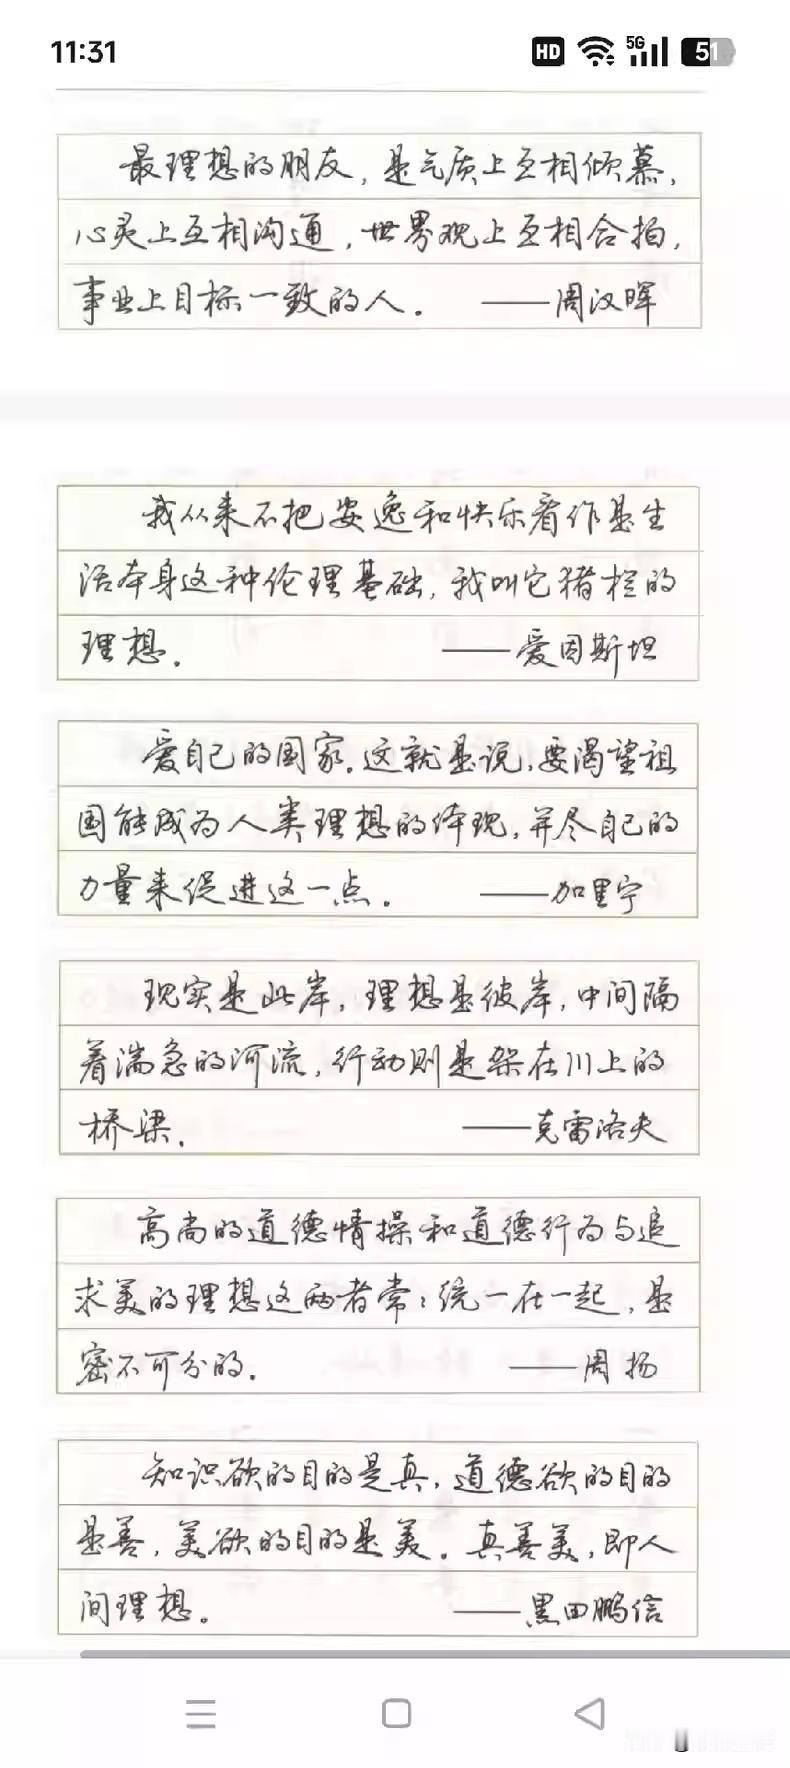 11:31
HD
5G
51
最理想的朋友，是气质上互相倾慕，
心灵上互相沟通，世界观上互相合拍，
事业上目标一致的人．——周汉晖
我从来不把安逸和快乐看作是生
活本身这种伦理基础，我叫它猪栏的
理想．——爱因斯坦
爱自己的国家．这就是说，要渴望祖
国能成为人类理想的体现，并尽自己的
力量来促进这一点．——加里宁
现实是此岸，理想是彼岸，中间隔
着湍急的河流，行动则是架在川上的
桥梁．——克雷洛夫
高尚的道德情操和道德行为与追
求美的理想这两者常：统一在一起，是
密不可分的．——周扬
知识欲的目的是真，道德欲的目的
是善，美欲的目的是美．真善美，即人
间理想．——黑田鹏信